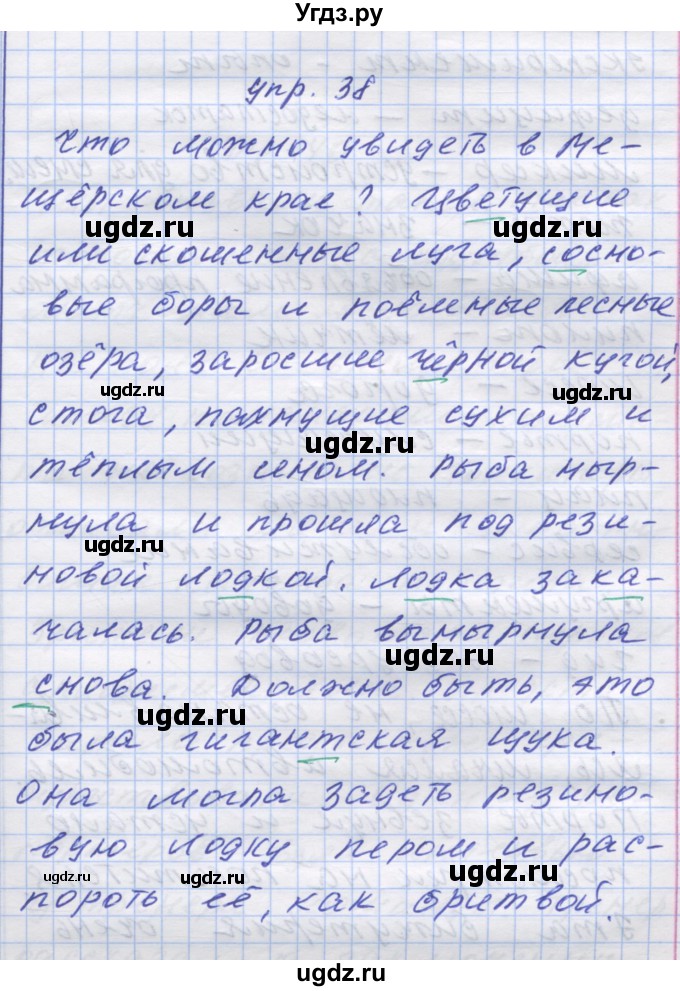 Угдз.ру
упр. 38
Что можно увидеть в Ме-
щёрском крае? Цветущие
ugdz.ru ugdz.ru
или скошенные луга, сосно-
вые боры и поёмные лесные
озёра, заросшие чёрной кугой,
ugdz.ru ugdz.ru
стога, пахнущие сухим и
ugdz.ru
тёплым сеном. Рыба ныр-
нула и прошла под рези-
ugdz.ru
новой лодкой. Лодка зака-
чалась. Рыба вынырнула
ugdz.ru
снова. Должно быть, это
ugdz.ru
была гигантская щука.
Она могла задеть резино-
вую лодку пером и рас-
ugdz.ru ugdz.ru ugdz.ru
пороть её, как бритвой.
ugdz.ru